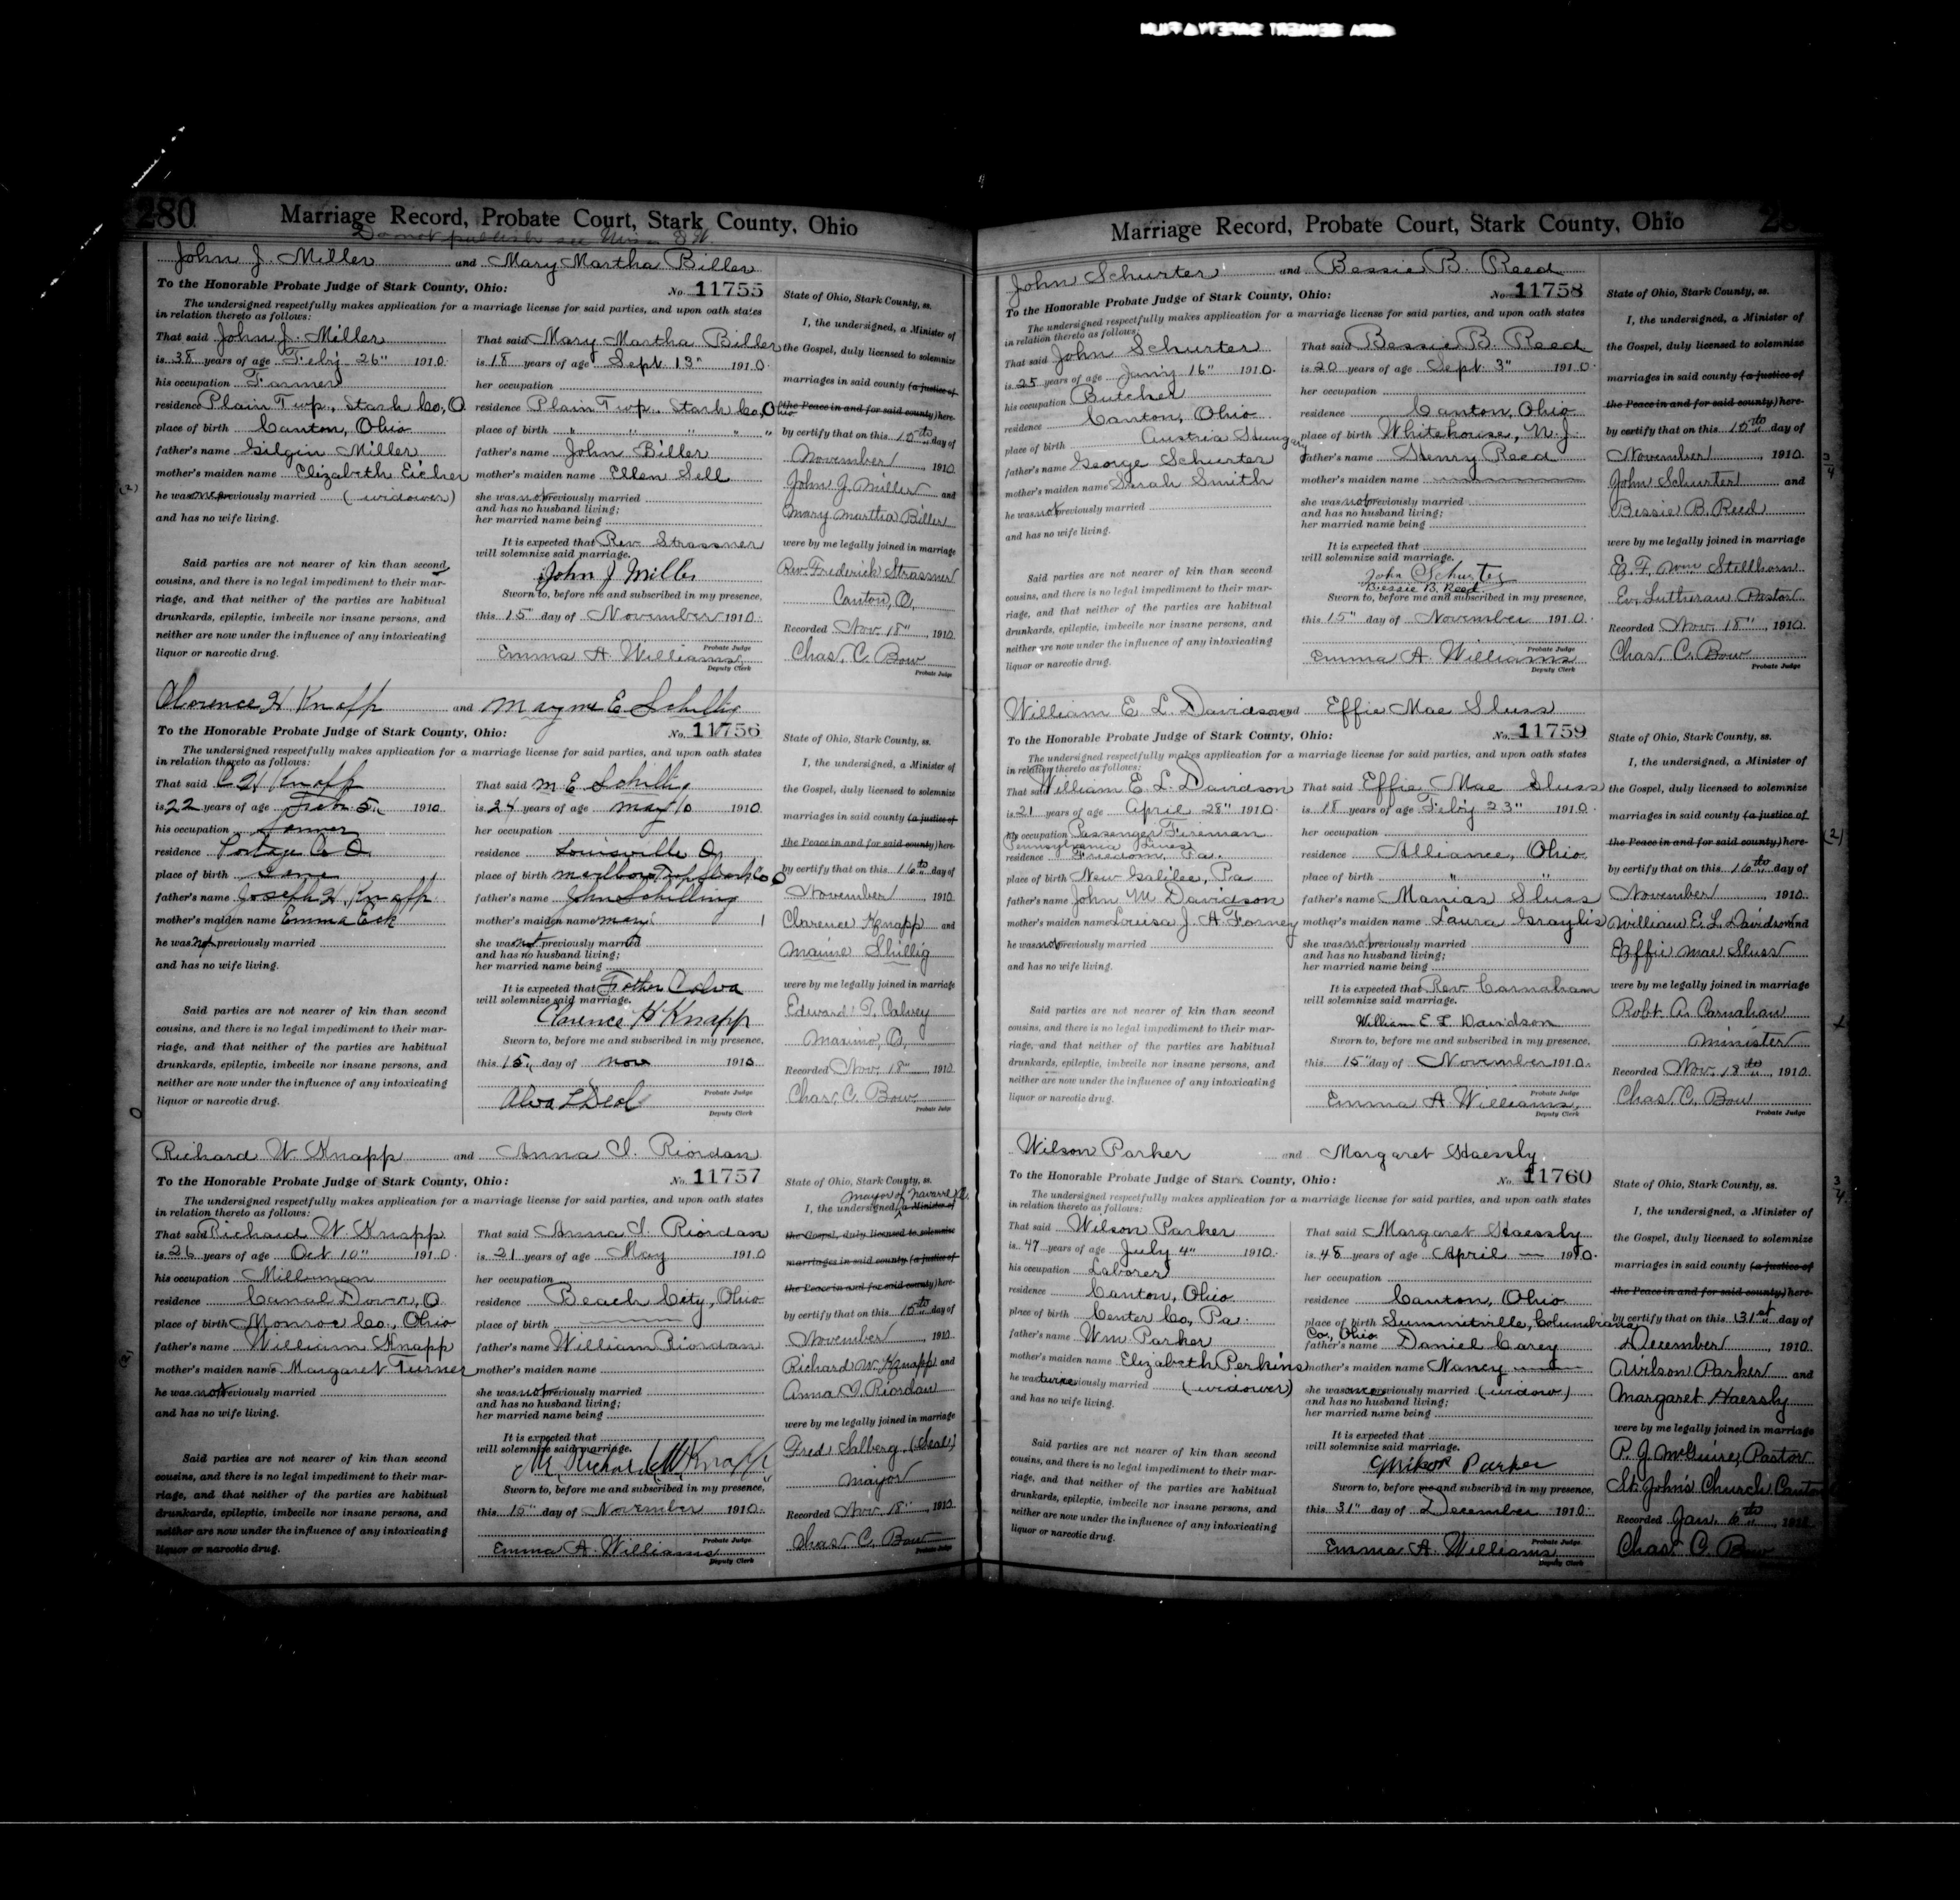 280
Marriage Record, Probate Court, Stark County, Ohio
Do not publish see
John J. Miller and Mary Martha Biller
To the Honorable Probate Judge of Stark County, Ohio: No. 11755
The undersigned respectfully makes application for a marriage license for said parties, and upon oath states
in relation thereto as follows:
That said John J. Miller
is 38 years of age Feby 26" 1910.
his occupation Farmer
residence Plain Twp., Stark Co., O.
place of birth Canton, Ohio
father's name Gilgin Miller
mother's maiden name Elizabeth Eicher
he was once previously married (widower)
and has no wife living.
Said parties are not nearer of kin than second
cousins, and there is no legal impediment to their mar-
riage, and that neither of the parties are habitual
drunkards, epileptic, imbecile nor insane persons, and
neither are now under the influence of any intoxicating
liquor or narcotic drug.
That said Mary Martha Biller
is 18 years of age Sept 13" 1910.
her occupation
residence Plain Twp., Stark Co., Ohio
place of birth " " " " "
father's name John Biller
mother's maiden name Ellen Sell
she was not previously married
and has no husband living;
her married name being
It is expected that Rev. Strassner
will solemnize said marriage.
John J Miller
Sworn to, before me and subscribed in my presence,
this 15" day of November 1910.
Probate Judge
Emma A. Williams
Deputy Clerk
State of Ohio, Stark County, ss.
I, the undersigned, a Minister of
the Gospel, duly licensed to solemnize
marriages in said county (a justice of
the Peace in and for said county) here-
by certify that on this 15th day of
November, 1910.
John J. Miller and
Mary Martha Biller
were by me legally joined in marriage
Rev. Frederick Strassner
Canton, O.
Recorded Nov. 18", 1910
Chas. C. Bow
Probate Judge
Clarence H Knapp and Mayme E Schillig
To the Honorable Probate Judge of Stark County, Ohio: No. 11756
The undersigned respectfully makes application for a marriage license for said parties, and upon oath states
in relation thereto as follows:
That said C H Knapp
is 22 years of age 5" 1910
his occupation Farmer
residence Portage Co O.
place of birth Same
father's name Joseph H. Knapp
mother's maiden name Emma Eck
he was not previously married
and has no wife living.
Said parties are not nearer of kin than second
cousins, and there is no legal impediment to their mar-
riage, and that neither of the parties are habitual
drunkards, epileptic, imbecile nor insane persons, and
neither are now under the influence of any intoxicating
liquor or narcotic drug.
That said M E Schillig
is 24 years of age May 10 1910
her occupation
residence Louisville O
place of birth Marlboro Twp Stark Co O
father's name John Schilling
mother's maiden name
she was not previously married
and has no husband living;
her married name being
It is expected that Father Calva
will solemnize said marriage.
Clarence H Knapp
Sworn to, before me and subscribed in my presence,
this 15" day of Nov 1910
Probate Judge
Alva L Deol
Deputy Clerk
State of Ohio, Stark County, ss.
I, the undersigned, a Minister of
the Gospel, duly licensed to solemnize
marriages in said county (a justice of
the Peace in and for said county) here-
by certify that on this 16th day of
November, 1910
Clarence Knapp and
Maime Shillig
were by me legally joined in marriage
Edward P. Calvey
Maximo, O.
Recorded Nov. 18", 1910
Chas. C. Bow
Probate Judge
Richard W. Knapp and Anna I. Riordan
To the Honorable Probate Judge of Stark County, Ohio: No. 11757
The undersigned respectfully makes application for a marriage license for said parties, and upon oath states
in relation thereto as follows:
That said Richard W. Knapp
is 26 years of age Oct 10" 1910.
his occupation Millman
residence Canal Dover, O
place of birth Monroe Co., Ohio
father's name William Knapp
mother's maiden name Margaret Turner
he was not previously married
and has no wife living.
Said parties are not nearer of kin than second
cousins, and there is no legal impediment to their mar-
riage, and that neither of the parties are habitual
drunkards, epileptic, imbecile nor insane persons, and
neither are now under the influence of any intoxicating
liquor or narcotic drug.
That said Anna I. Riordan
is 21 years of age May 1910
her occupation
residence Beach City, Ohio
place of birth
father's name William Riordan
mother's maiden name
she was not previously married
and has no husband living;
her married name being
It is expected that
will solemnize said marriage.
Mr. Richard W Knapp
Sworn to, before me and subscribed in my presence,
this 15" day of November 1910.
Probate Judge
Emma A. Williams
Deputy Clerk
State of Ohio, Stark County, ss.
Mayor of Navarre
I, the undersigned, a Minister of
the Gospel, duly licensed to solemnize
marriages in said county (a justice of
the Peace in and for said county) here-
by certify that on this 15th day of
November, 1910
Richard W. Knapp and
Anna I. Riordan
were by me legally joined in marriage
Fred Salberg (Seal)
Mayor
Recorded Nov 18", 1910
Chas. C. Bow
Probate Judge
Marriage Record, Probate Court, Stark County, Ohio
John Schurter and Bessie B. Reed
To the Honorable Probate Judge of Stark County, Ohio: No. 11758
The undersigned respectfully makes application for a marriage license for said parties, and upon oath states
in relation thereto as follows:
That said John Schurter
is 25 years of age Jany 16" 1910.
his occupation Butcher
residence Canton, Ohio
place of birth Austria Hungary
father's name George Schurter
mother's maiden name Sarah Smith
he was not previously married
and has no wife living.
Said parties are not nearer of kin than second
cousins, and there is no legal impediment to their mar-
riage, and that neither of the parties are habitual
drunkards, epileptic, imbecile nor insane persons, and
neither are now under the influence of any intoxicating
liquor or narcotic drug.
That said Bessie B. Reed
is 20 years of age Sept 3" 1910.
her occupation
residence Canton, Ohio
place of birth Whitehouse, N.J.
father's name Henry Reed
mother's maiden name
she was not previously married
and has no husband living;
her married name being
It is expected that
will solemnize said marriage.
John Schurter
Bessie B. Reed
Sworn to, before me and subscribed in my presence,
this 15" day of November 1910.
Probate Judge
Emma A. Williams
Deputy Clerk
State of Ohio, Stark County, ss.
I, the undersigned, a Minister of
the Gospel, duly licensed to solemnize
marriages in said county (a justice of
the Peace in and for said county) here-
by certify that on this 15th day of
November, 1910.
John Schurter and
Bessie B. Reed
were by me legally joined in marriage
E. F. Wm Stellhorn
Ev. Lutheran Pastor
Recorded Nov. 18", 1910
Chas. C. Bow
Probate Judge
William E. L. Davidson and Effie Mae Sluss
To the Honorable Probate Judge of Stark County, Ohio: No. 11759
The undersigned respectfully makes application for a marriage license for said parties, and upon oath states
in relation thereto as follows:
That said William E. L. Davidson
is 21 years of age April 28" 1910.
his occupation Passenger Fireman
Pennsylvania Lines
residence Freedom, Pa.
place of birth New Galilee, Pa
father's name John M. Davidson
mother's maiden name Louisa J. A. Forney
he was not previously married
and has no wife living.
Said parties are not nearer of kin than second
cousins, and there is no legal impediment to their mar-
riage, and that neither of the parties are habitual
drunkards, epileptic, imbecile nor insane persons, and
neither are now under the influence of any intoxicating
liquor or narcotic drug.
That said Effie Mae Sluss
is 18 years of age Feby 23" 1910.
her occupation
residence Alliance, Ohio
place of birth " "
father's name Manias Sluss
mother's maiden name Laura Graylis
she was not previously married
and has no husband living;
her married name being
It is expected that Rev. Carnahan
will solemnize said marriage.
William E L Davidson
Sworn to, before me and subscribed in my presence,
this 15" day of November 1910.
Probate Judge
Emma A. Williams,
Deputy Clerk
State of Ohio, Stark County, ss.
I, the undersigned, a Minister of
the Gospel, duly licensed to solemnize
marriages in said county (a justice of
the Peace in and for said county) here-
by certify that on this 16th day of
November, 1910.
William E. L. Davidson and
Effie Mae Sluss
were by me legally joined in marriage
Robt. A. Carnahan
Minister
Recorded Nov. 18th, 1910.
Chas. C. Bow
Probate Judge
Wilson Parker and Margaret Haessly
To the Honorable Probate Judge of Stark County, Ohio: No. 11760
The undersigned respectfully makes application for a marriage license for said parties, and upon oath states
in relation thereto as follows:
That said Wilson Parker
is 47 years of age July 4" 1910.
his occupation Laborer
residence Canton, Ohio
place of birth Center Co, Pa.
father's name Wm. Parker
mother's maiden name Elizabeth Perkins
he was twice previously married (widower)
and has no wife living.
Said parties are not nearer of kin than second
cousins, and there is no legal impediment to their mar-
riage, and that neither of the parties are habitual
drunkards, epileptic, imbecile nor insane persons, and
neither are now under the influence of any intoxicating
liquor or narcotic drug.
That said Margaret Haessly
is 48 years of age April — 1910.
her occupation
residence Canton, Ohio
place of birth Summitville, Columbiana
Co., Ohio
father's name Daniel Carey
mother's maiden name Nancy
she was once previously married (widow)
and has no husband living;
her married name being
It is expected that
will solemnize said marriage.
Wilson Parker
Sworn to, before me and subscribed in my presence,
this 31" day of December 1910.
Probate Judge
Emma A. Williams
Deputy Clerk
State of Ohio, Stark County, ss.
I, the undersigned, a Minister of
the Gospel, duly licensed to solemnize
marriages in said county (a justice of
the Peace in and for said county) here-
by certify that on this 31st day of
December, 1910.
Wilson Parker and
Margaret Haessly
were by me legally joined in marriage
P. J. McGuire, Pastor
St. John's Church Canton
Recorded Jan. 6th
Chas. C. Bow